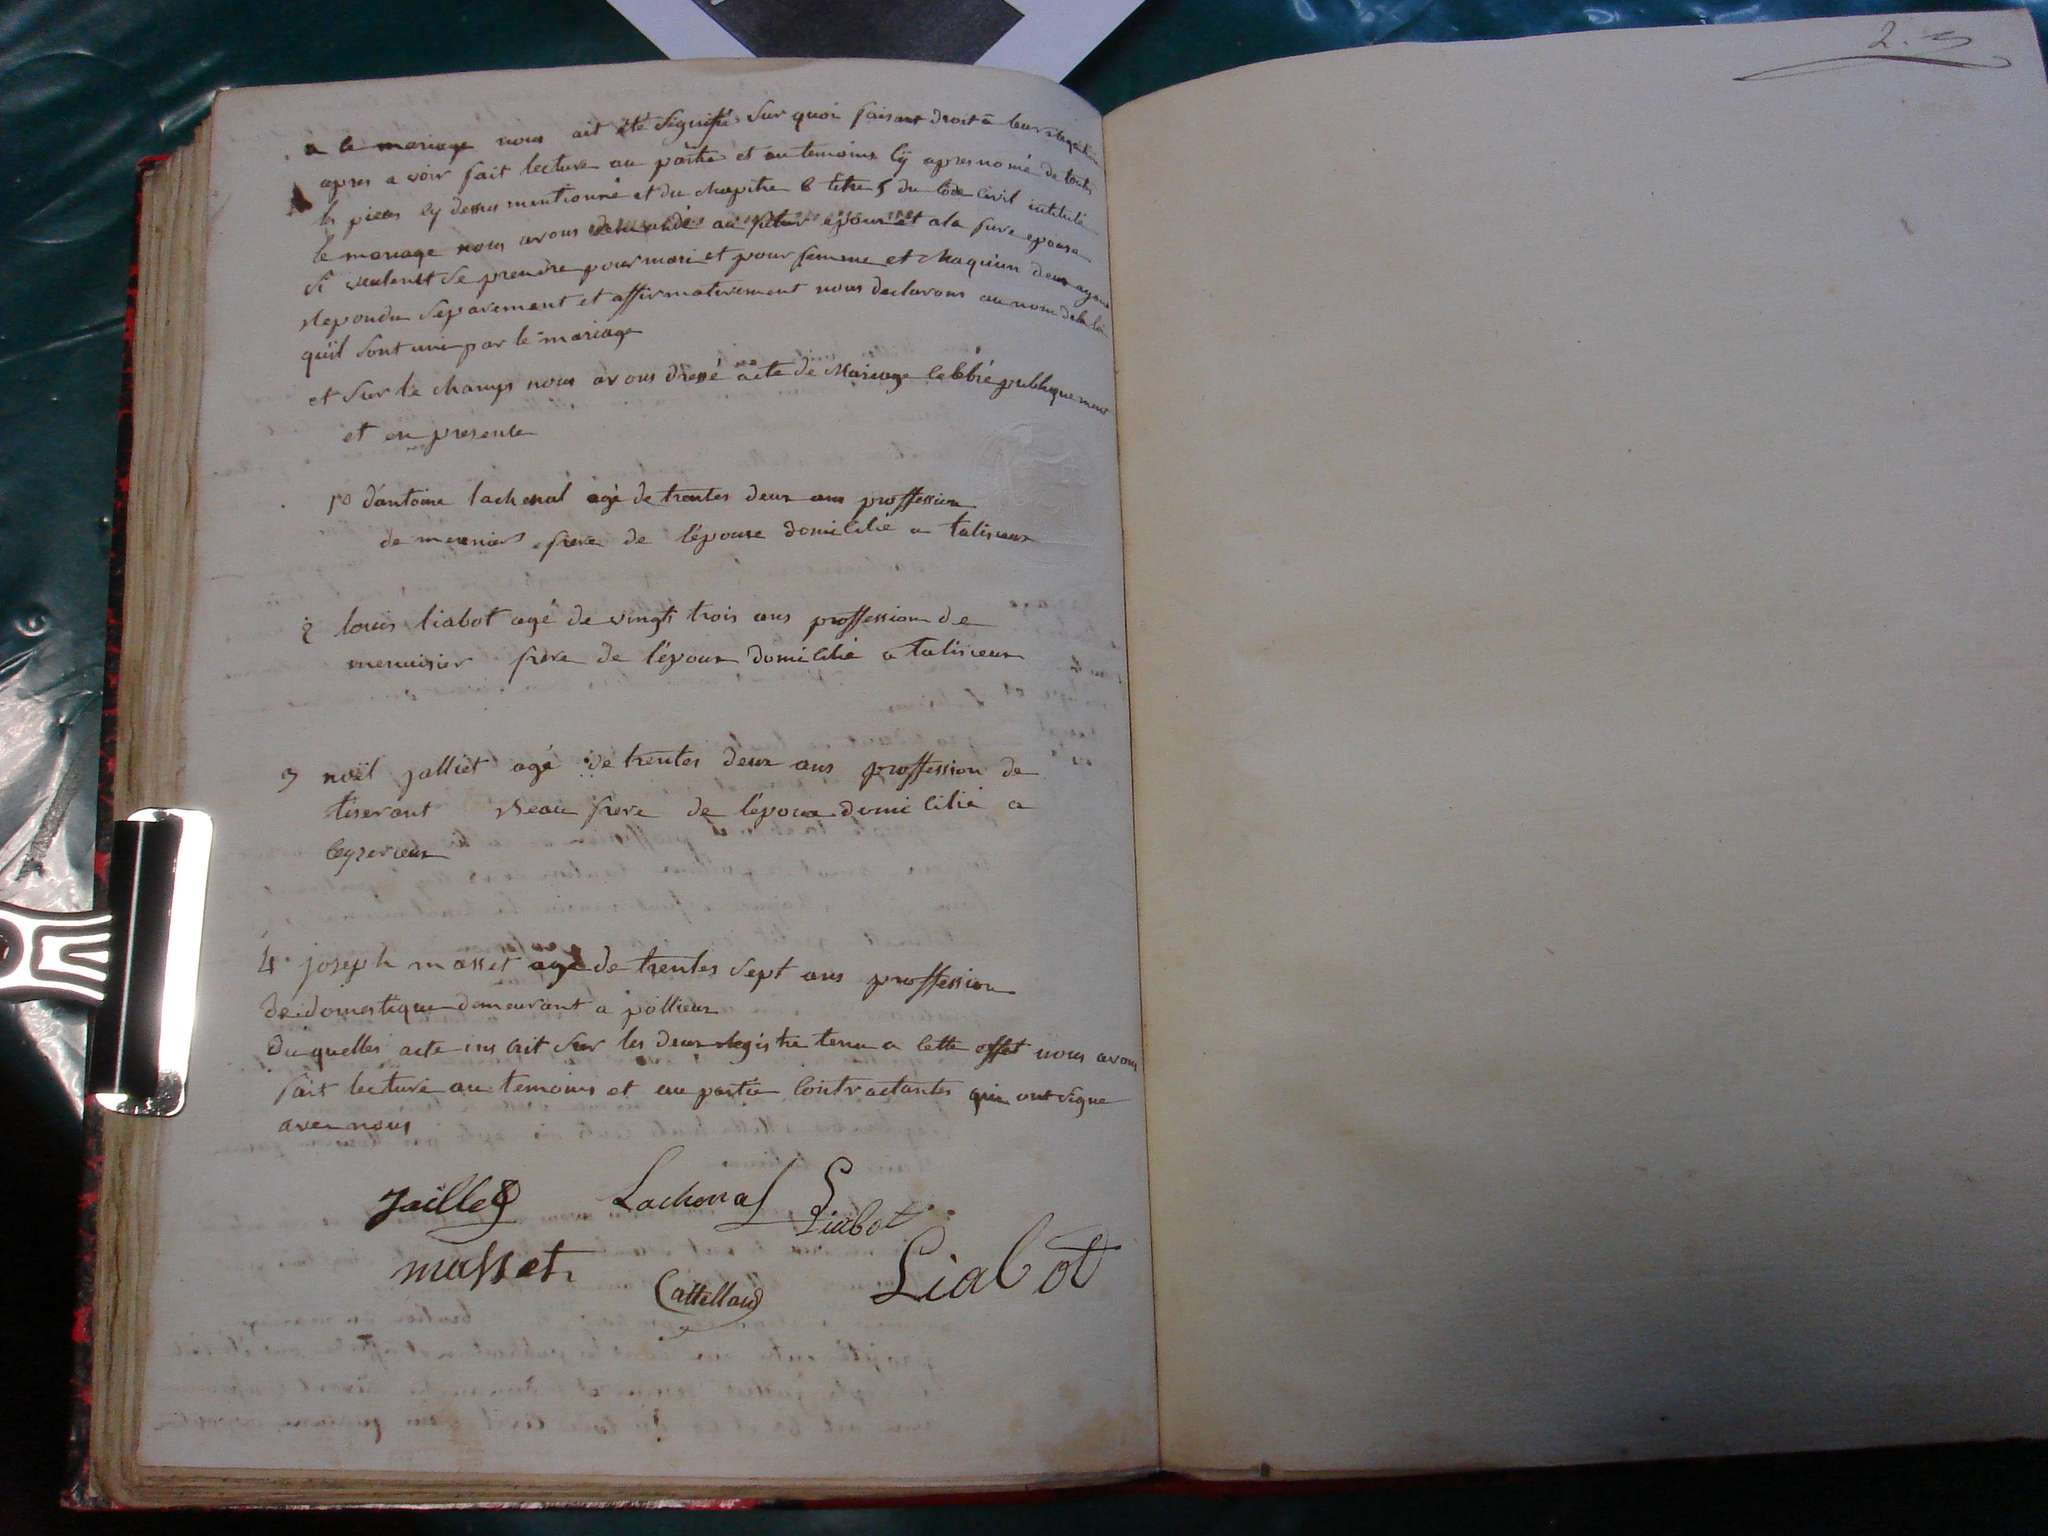 2.
a le mariage nous ait été Signifié Sur quoi faisant droit a leur requisition
apres a voir fait lecture au partie et au temoins cy apres nomé de toutes
les pieces cy dessus mentionné et du chapitre 6 titre 5 du Code Civil intitulé
le mariage nous avons demandé au futur epoux et a la future epouse
si veulent Se prendre pour mari et pour femme et chaqu'un deux ayant
repondu Séparement et affirmativement nous declarons au nom de la loi
qu'il Sont uni par le mariage
et Sur le champs nous avons dressé acte de Mariage celebré publiquement
et en presence
1º d'antoine lachenal agé de trentes deux ans proffession
de meunier frere de l'épouse domicilié a talissieux
2 louis liabot agé de vingt trois ans proffession de
menuisier frere de l'époux domicilié a talissieux
3 noël jalliet agé de trentes deux ans proffession de
tiserant Beau frere de l'époux domicilié a
ceyzerieux
4. joseph masset agé de trentes Sept ans proffession
de domestique demeurant a pollieux
Du quelles acte inscrit Sur les deux registre tenu a cette effet nous avons
fait lecture au temoins et au partie contractantes qui ont signé
avec nous
Jaillet Lachenal Liabot
masset Cattelland Liabot